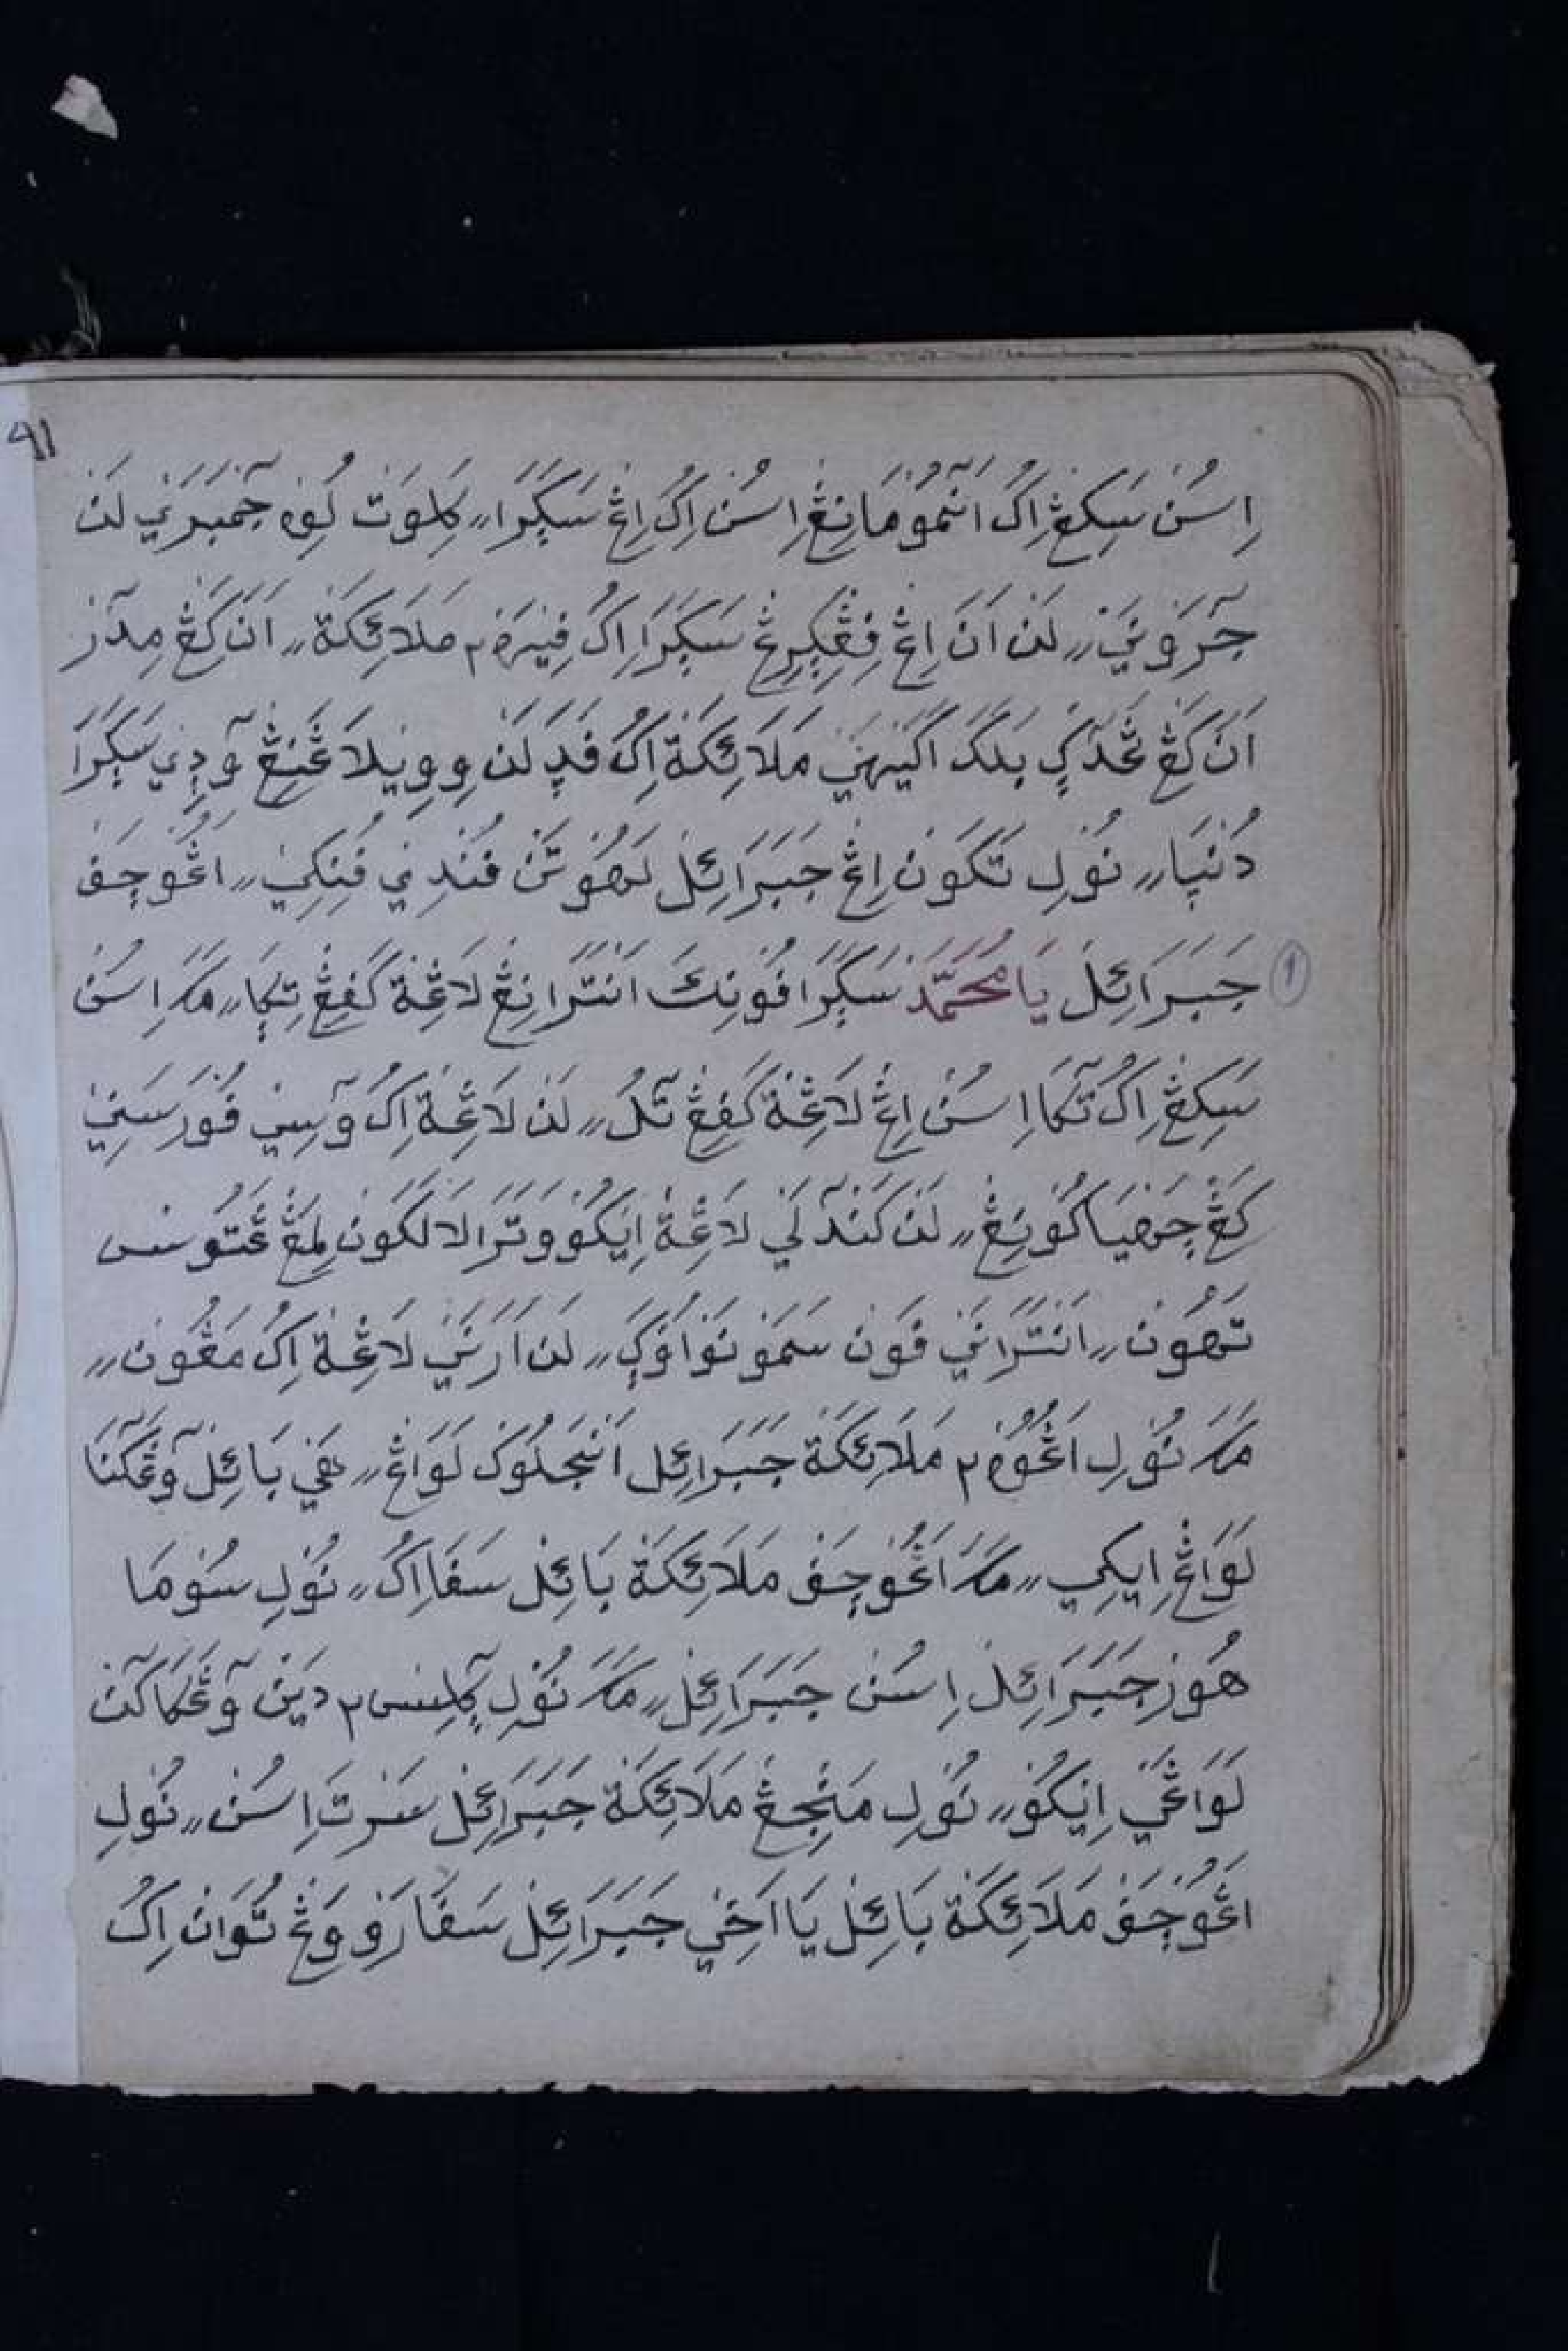 ٩١
اِسُنْ سَكِڠْ اِكُ اَنَمُوْمَانِڠْ اِسُنْ اِكُ اِڠْ سَݢَرَا ،، كَلِوَتْ لُوِهْ جٓمْبَرَنَيْ لَنْ
جٓرَوْنَيْ ،، لَنْ اَنَ اِڠْ فِڠْݢِرِڠْ سَݢَرَا اِكُ فِيْرَهْ٢ مَلَائِكَةْ ،، اَنَ كَڠْ مِدٓرْ
اَنَ كَڠْ ڠَدَݢْ بَلَكَ اَكَيْهَيْ مَلَائِكَةْ اِكُ فَدَ لَنْ وِوِيْلَاڠَنِڠْ وٓدِيْ سَݢَرَا
دُنْيَا ،، نُوْلِ تَكَوْنْ اِڠْ جَبَرَائِلْ لَهُوْتَنْ فُنْدِيْ فُنِكِيْ ،، اَڠُوْچَفْ
١ جَبَرَائِلْ يَا مُحَمَّدْ سَݢَرَا فُوْنِكَ اَنْتَرَانِڠْ لَاڠِةْ كَفِڠْ تِݢَا ،، مَكَ اِسُنْ
سَكِڠْ اِكُ تٓكَا اِسُنْ اِڠْ لَاڠِةْ كَفِڠْ تٓلُ ،، لَنْ لَاڠِةْ اِكُ وٓسِيْ فُوْرَسَنِيْ
كَڠْ چَهْيَا كُوْنِڠْ ،، لَنْ كَنْدٓلَيْ لَاڠِةْ اِيْكُوْ وَتَرَا لَالَكَوْنْ لِمَڠْ ڠَتُوْسْ
تَهُوْنْ ،، اَنْتَرَانَيْ فَوْنْ سَمَوْنَوْ اُوْݢَ ،، لَنْ اَرَنَيْ لَاڠِةْ اِكُ مَڠُوْنْ ،،
مَكَ نُوْلِ اَڠُوْهْ٢ مَلَائِكَةْ جَبَرَائِلْ اَنْجَلُوْكْ لَوَاڠْ ،، هَيْ بَائِلْ وٓڠَكٓنَا
لَوَاڠْ اِيْكِيْ ،، مَكَ اَڠُوْچَفْ مَلَائِكَةْ بَائِلْ سَفَا اِكُ ،، نُوْلِ سُوْمَا
هُوْرْ جَبَرَائِلْ اِسُنْ جَبَرَائِلْ ،، مَكَ نُوْلِ ݢٓلِسْ٢ دَيْنْ وٓڠَكَاكٓنْ
لَوَاڠَيْ اِيْكُوْ ،، نُوْلِ مَنْجِڠْ مَلَائِكَةْ جَبَرَائِلْ سَرْتَ اِسُنْ ،، نُوْلِ
اَڠُوْچَفْ مَلَائِكَةْ بَائِلْ يَا اَخِيْ جَبَرَائِلْ سَفَا رَوْوَڠْ تُوَانْ اِكُ